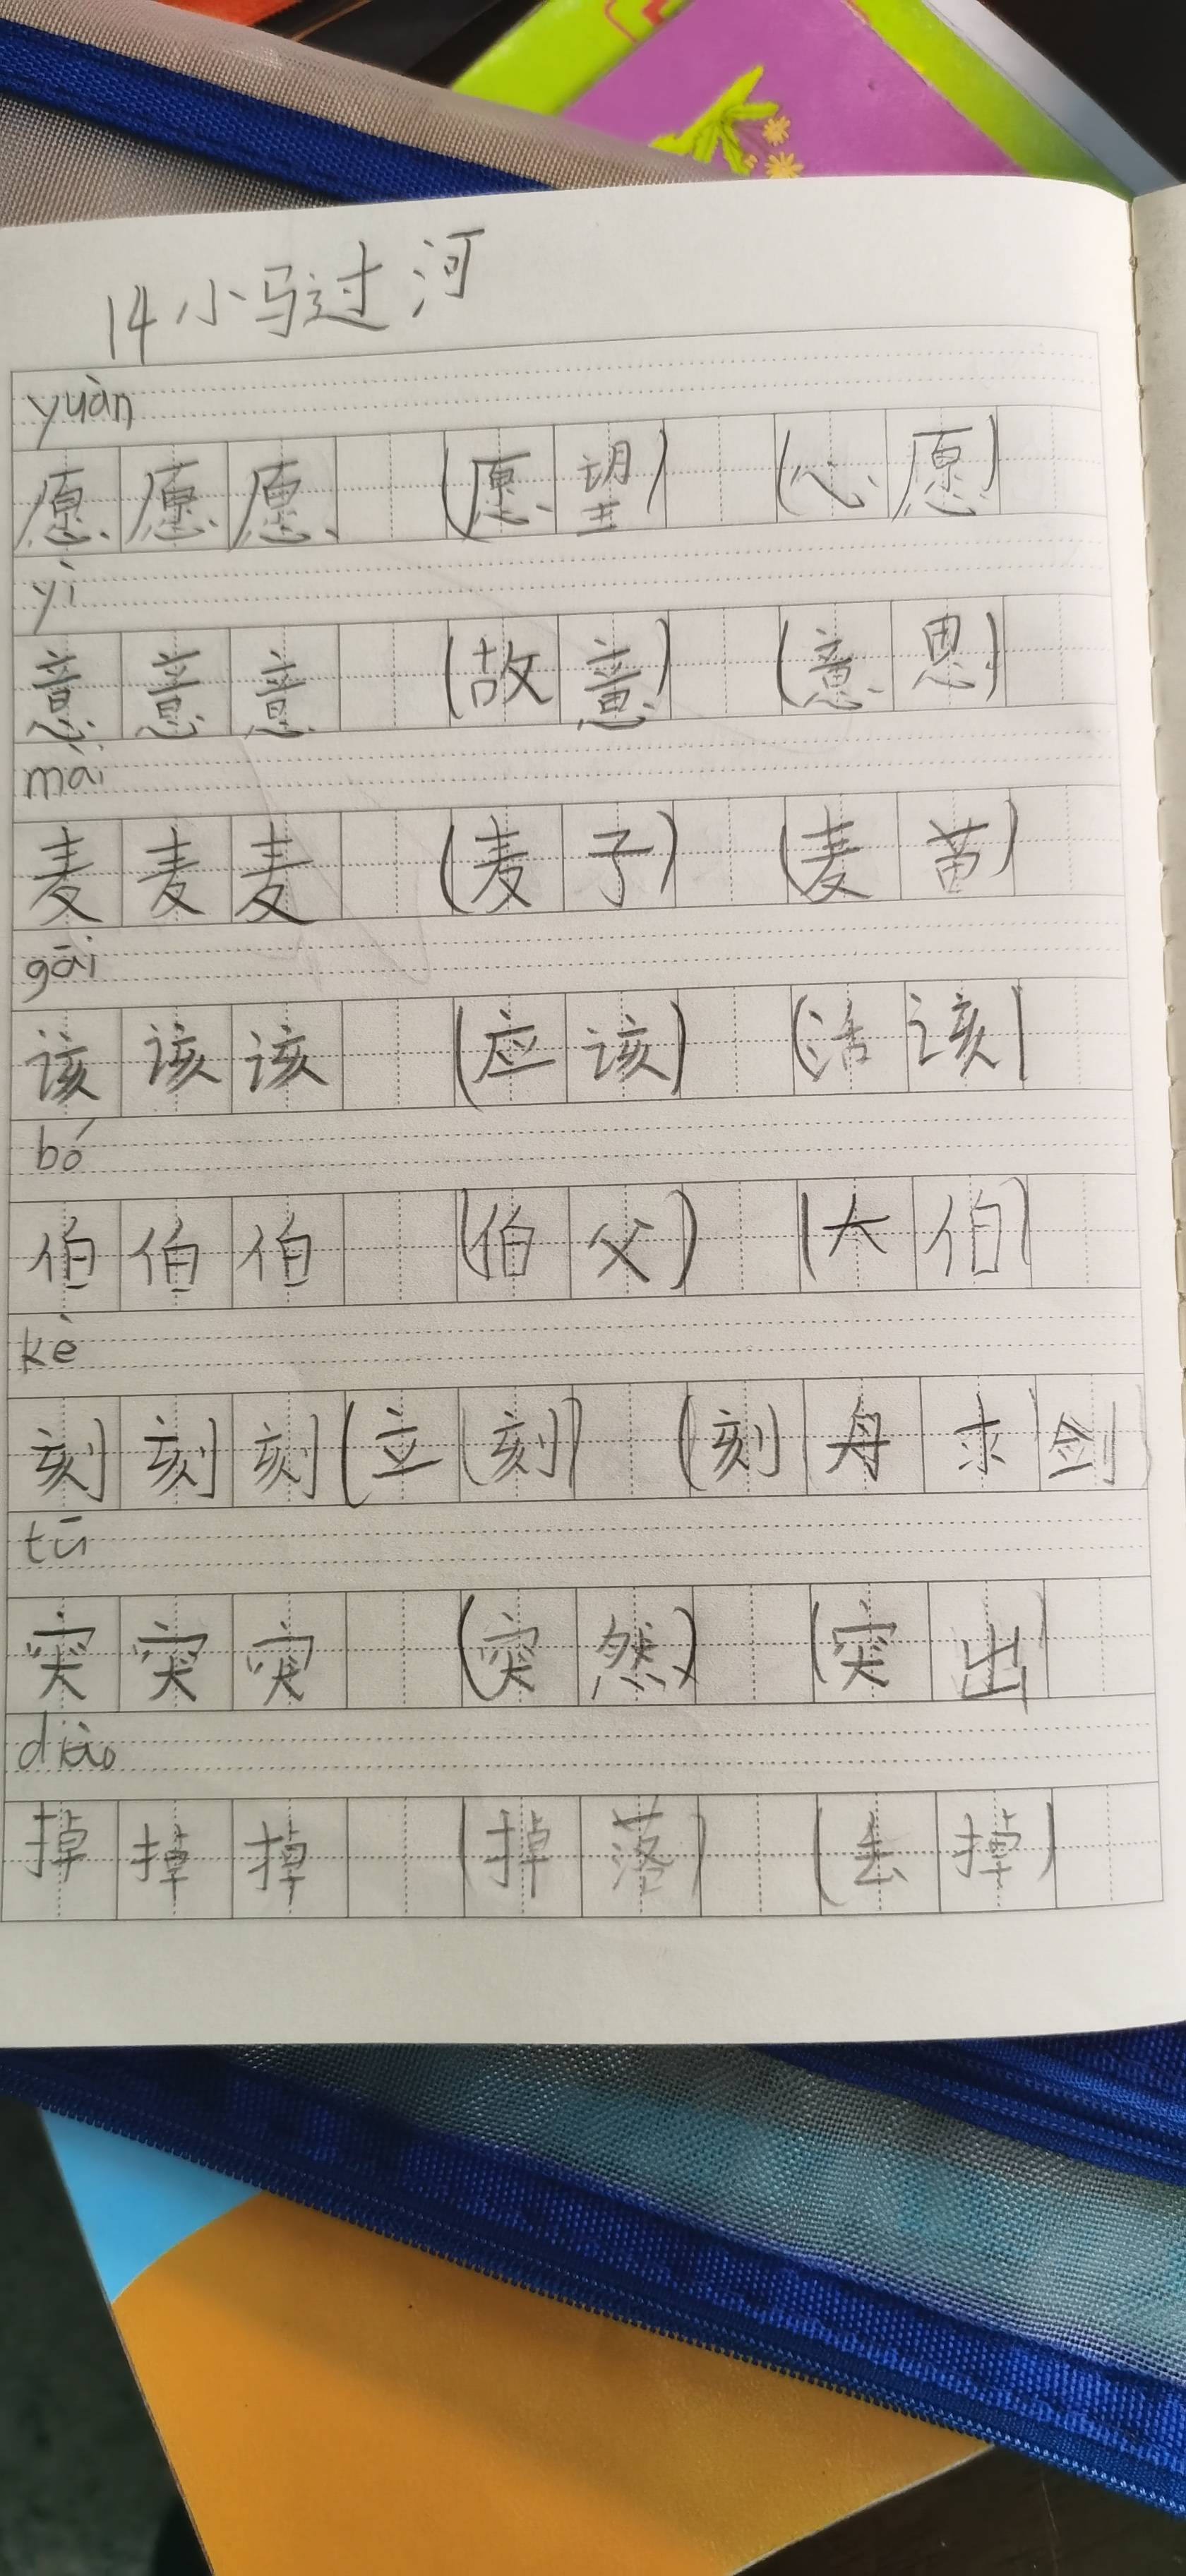 14 小马过河
yuàn
愿愿愿 (愿望) (心愿)
yì
意意意 (故意) (意思)
mài
麦麦麦 (麦子) (麦苗)
gāi
该该该 (应该) (活该)
bó
伯伯伯 (伯父) (大伯)
kè
刻刻刻(立刻) (刻舟求剑)
tū
突突突 (突然) (突出)
diào
掉掉掉 (掉落) (去掉)